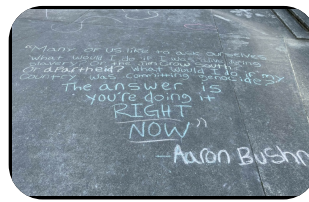 "Many of us like to ask ourselves,
What would I do if I was alive during
slavery? Or the Jim Crow South?
Or apartheid? What would I do if my
country was committing genocide?
The answer is
you're doing it
RIGHT
NOW"
-Aaron Bushn